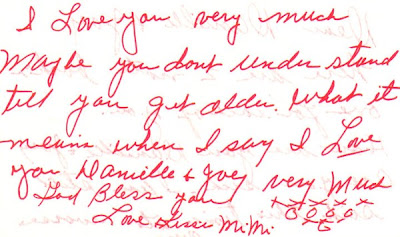 I Love you very much
Maybe you dont under stand
till you get older. What it
means when I say I Love
you Danielle & Joey very Much
God Bless you xxxxx
Love Sissie MiMi oooo